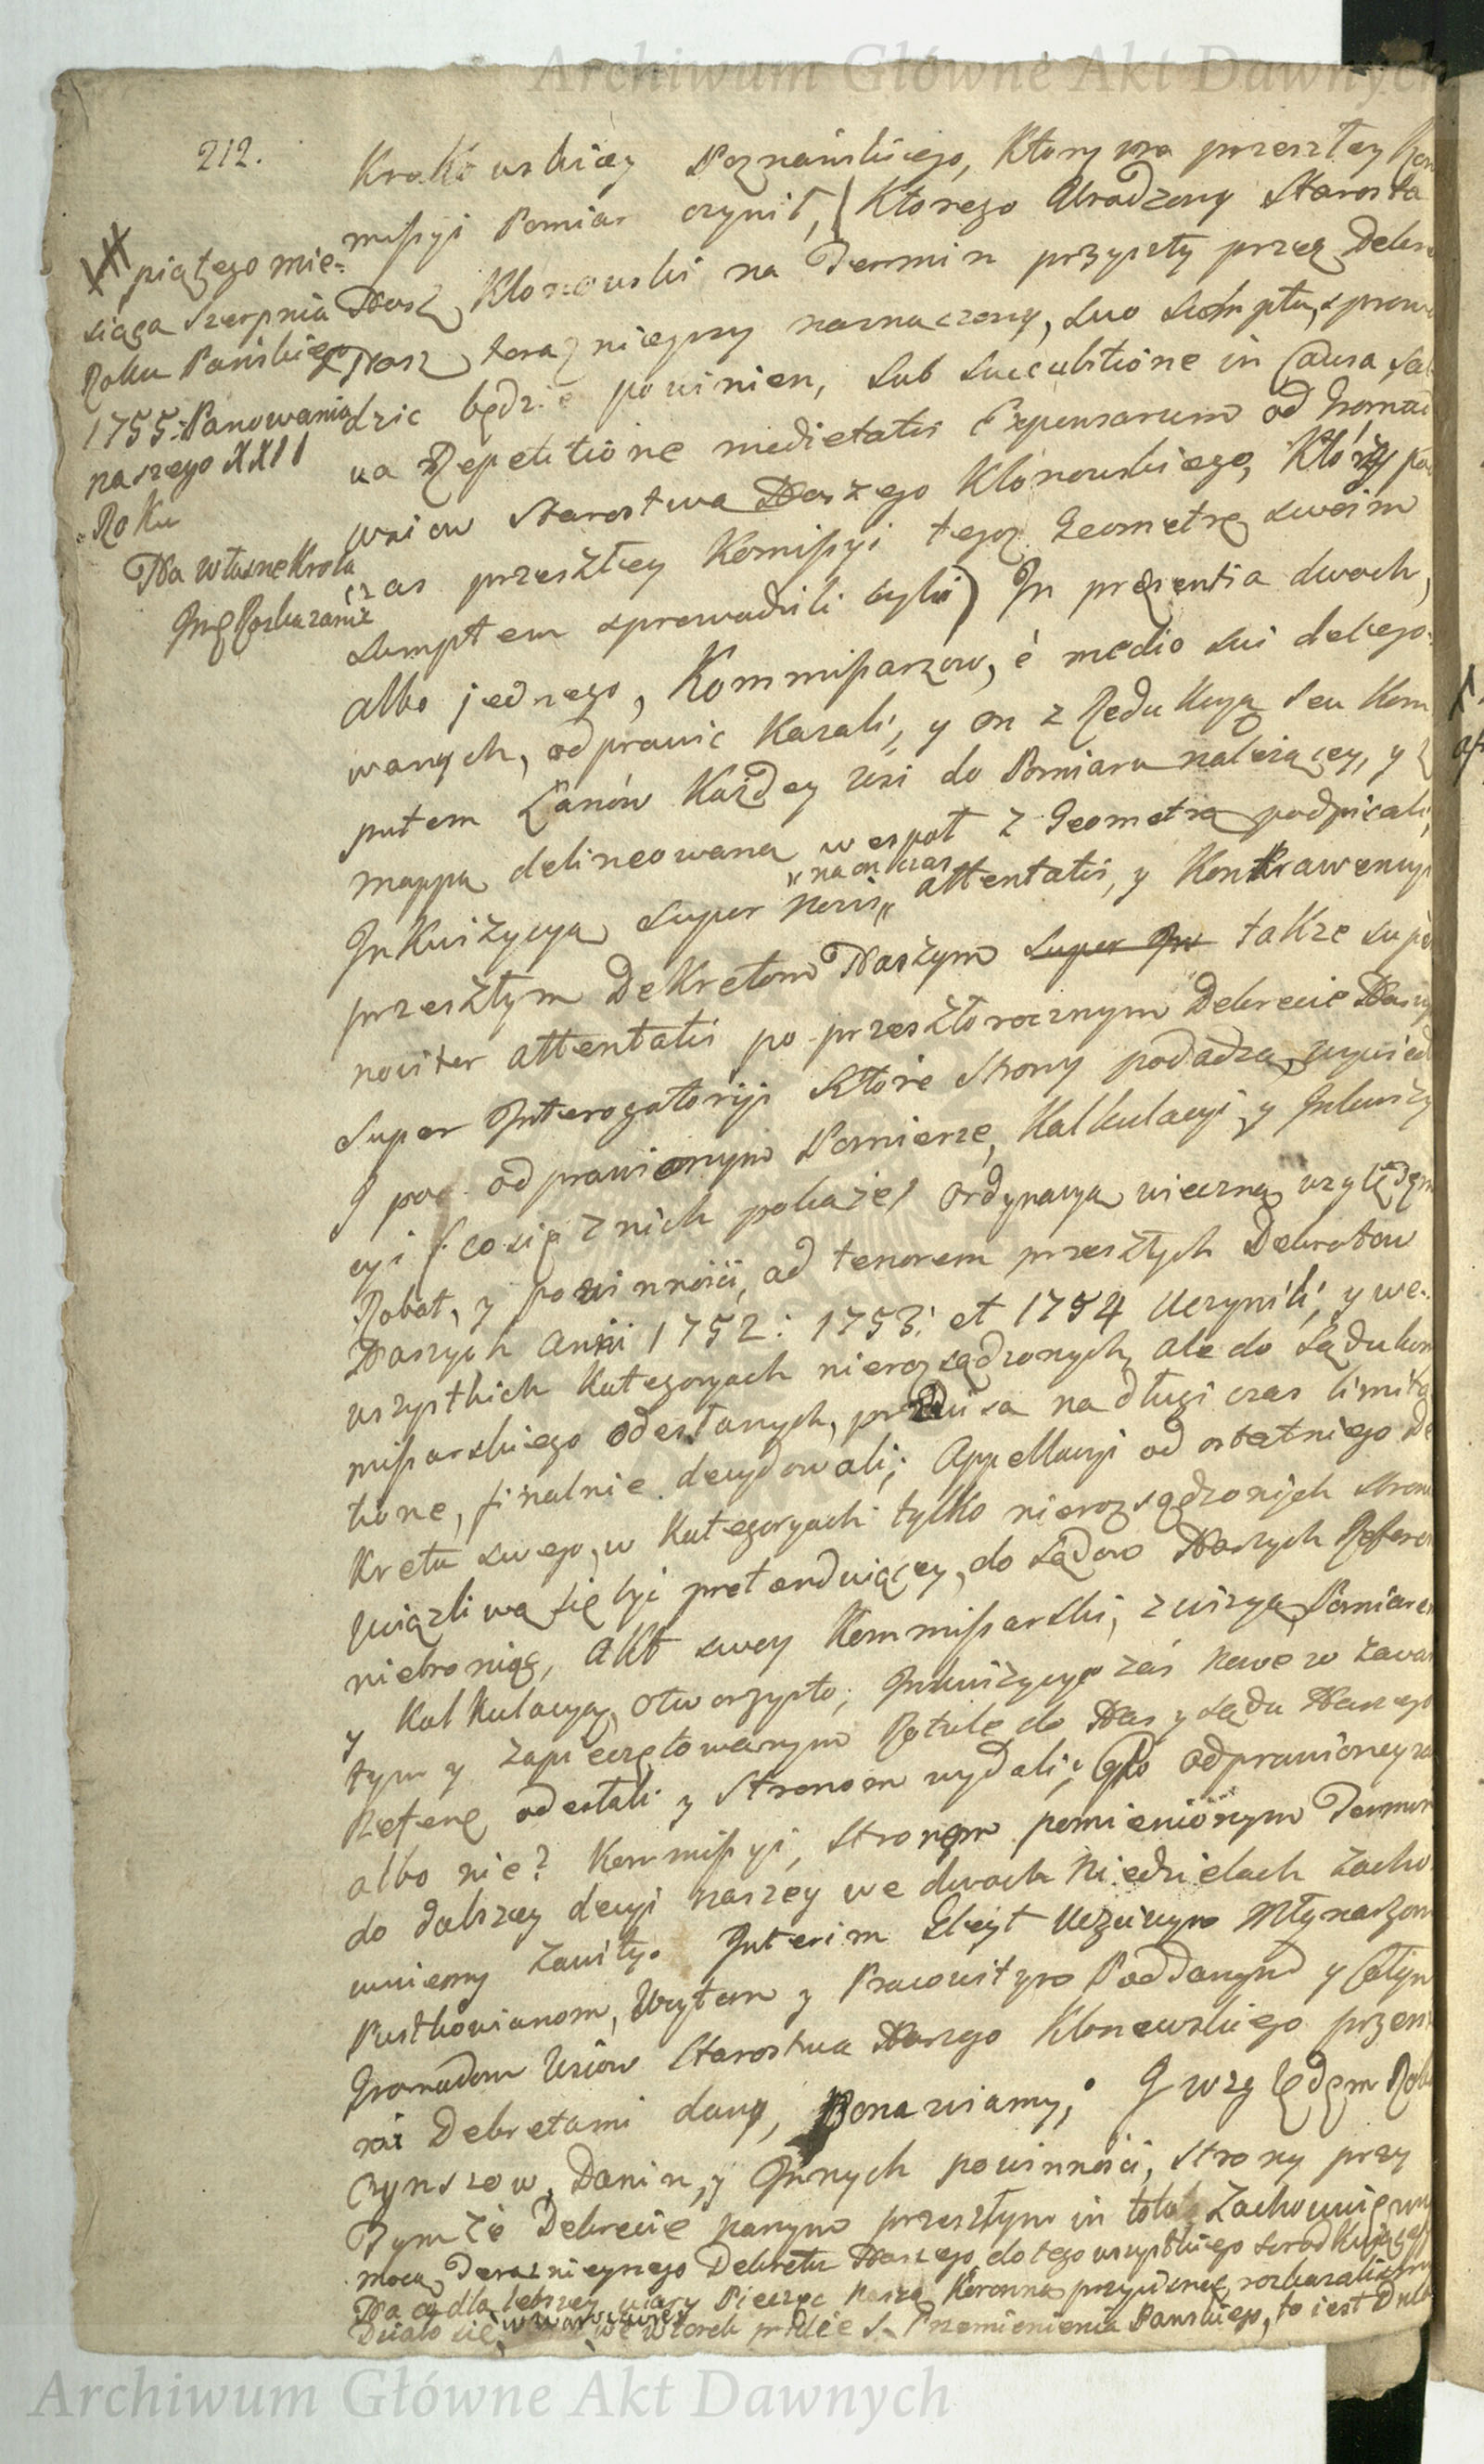 Archiwum Główne Akt Dawnych
212.
Krakowskiey Poznańskiego, Ktory na przeszłey Kom
missyi Pomiar czynił, (Ktorego Urodzony Starosta
Nasz Klonowski na Termin przyszły przez Dekre
Nasz teraznieyszy naznaczony, suo sumptu, sprowa
dzić będzie powinien, sub succubitione in Causa sal
va Repetitione medietatis Expensarum od Gromad
wsiow Starostwa Naszego Klonowskiego, Ktorzy pod
czas przeszłey Komissyi tegoż Geometrę swoim
sumptem sprowadzili byli) In præsentia dwoch,
albo jednego, Kommissarzow, è medio sui delego:
wanych, odprawić Kazali, y on z Redukcyą seu Kom
putem Łanów Każdey wsi do Pomiaru należącey, y z
mappą delineowaną wespoł z Geometrą podpisali,
"na on czas
Inkwizycyą super novis" attentatis, y Kontrawencyi
przeszłym DeKretom Naszym super In także super
noviter attentatis po przeszłorocznym Dekrecie Naszy
super Interogatoryi Które Strony podadzą, wywiedli
I po odprawionym Pomierze, Kalkulacyi y Inkwizy
cyi (co się z nich pokaże) Ordynacyą wieczną względem
Robot, y powinności, ad tenorem przeszłych Dekretow
Naszych Anni 1752: 1753: et 1754 Uczynili, y we:
wszystkich Kategoryach nierozsądzonych, ale do Sądu Kom
missarskiego odesłanych, præcisa na długi czas limita
tione, finalnie decydowali; Appellacyi od ostatniego De
Kretu swego, w Kategoryach tylko nierozsądzonych stronie
Uciążliwą się być pretenduiącey, do Sądow Naszych Referen
niebroniąc, AKt swey Kommissarski, z wizyą, Pomiarem
y KalKulacyą, otworzysto; Inkwizycye zaś nowe w zawar
tym y zapieczętowanym Rotule do Nas y Sądu Naszego
Refere odesłali y Stronom wydali; Po odprawioney zaś
albo nie? Kommissyi, Stronom pomienionym Termin
do dalszey decyzyi naszey we dwoch Niedzielach zacho
wuiemy zawity. Interim Gleyt Uczciwym Młynarzom
Pustkowianom, Woytom y Pracowitym Poddanym y Całym
Gromadom Wsiow Starostwa Naszego Klonowskiego przesz
mi Dekretami dany, Ponawiamy; I względem Robo
Czynszow, Danin, y Innych powinności, Strony przy
Tymże Dekrecie naszym przeszłym in toto zachowuiemy
mocą Teraznieyszego Dekretu Naszego, do tego wszystkiego
Na co dla lepszey wiary Pieczęć Naszą Koronną przycisnąć rozkazaliśmy
Działo się w Warszawie we wtorek w Przemienienia Panskiego, to iest Dnia
piątego mie:
siąca Sierpnia
Roku Pańskiego
1755: Panowania
naszego XXII
Roku
Na własne Krola
Jmc Rozkazanie
Archiwum Główne Akt Dawnych